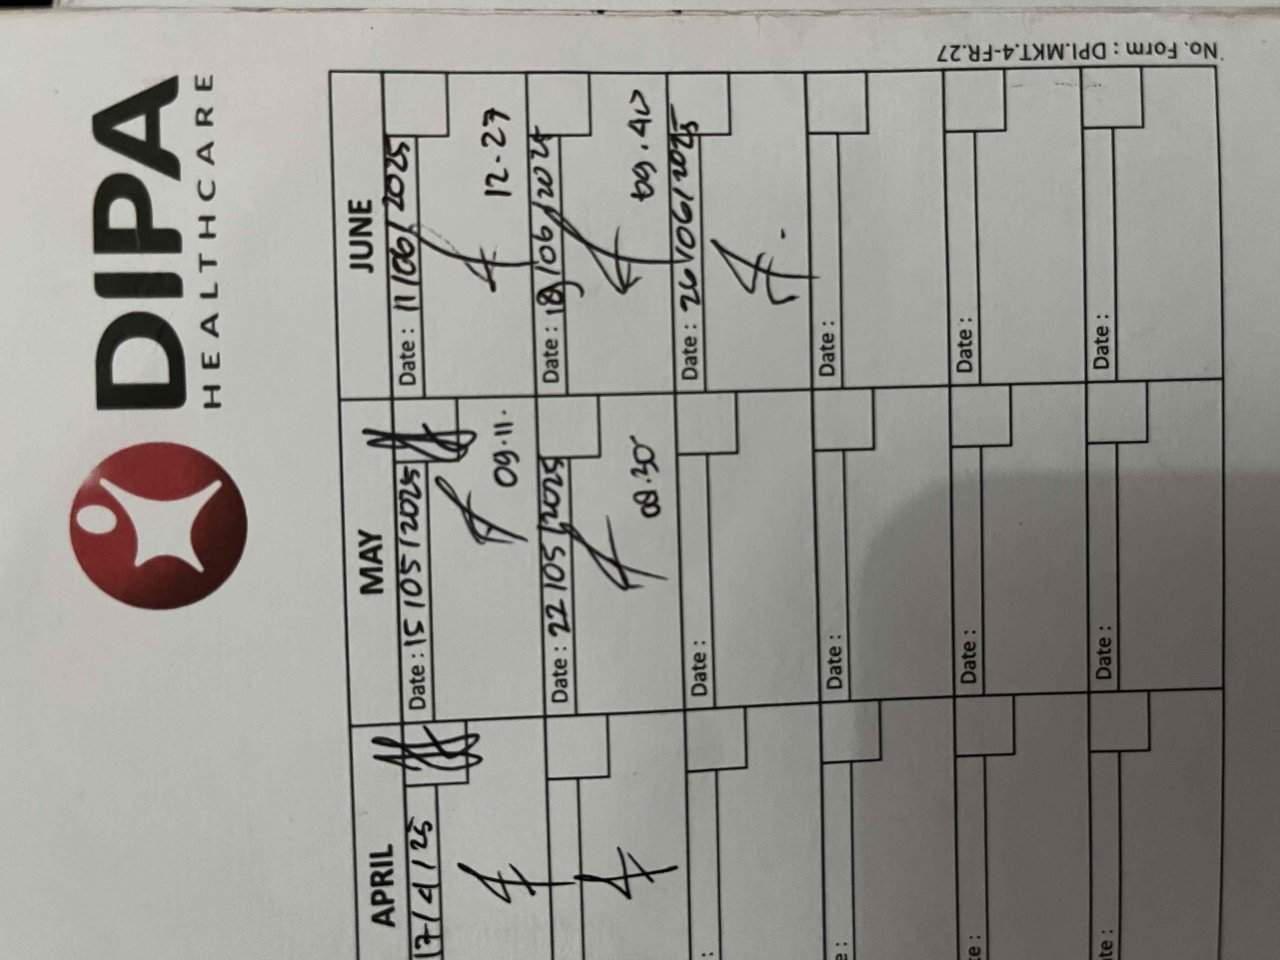 DIPA
HEALTHCARE
No. Form : DPI.MKT.4-FR.27
APRIL
MAY
JUNE
17/4/25
Date : 15/05/2025
09.11.
Date : 11/06/2025
12.27
Date : 22/05/2025
08.30
Date : 18/06/2025
09.40
Date :
Date : 26/06/2025
:
Date :
Date :
e :
Date :
Date :
te :
Date :
Date :